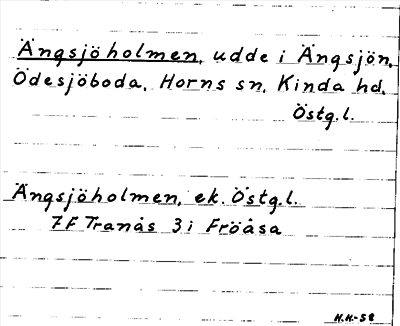 Ängsjöholmen, udde i Ängsjön,
Ödesjöboda, Horns sn, Kinda hd,
Östg.l.
Ängsjöholmen, ek. Östg.l.
7F Tranås 3 i Fröåsa
H.H.-58